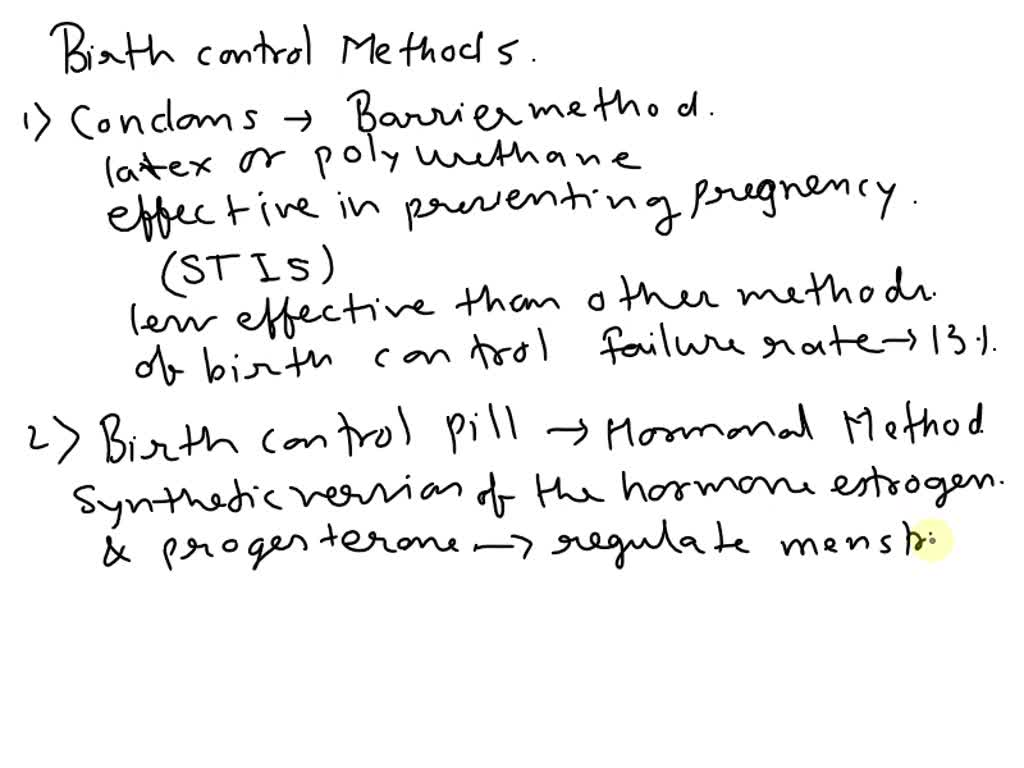 Birth control Methods.
1) Condoms → Barrier method.
latex or polyurethane
effective in preventing pregnency.
(STIs)
less effective than other methods.
of birth control failure rate → 13%.
2) Birth control pill → Hormonal Method
Synthetic version of the hormone estrogen.
& progesterone → regulate menst